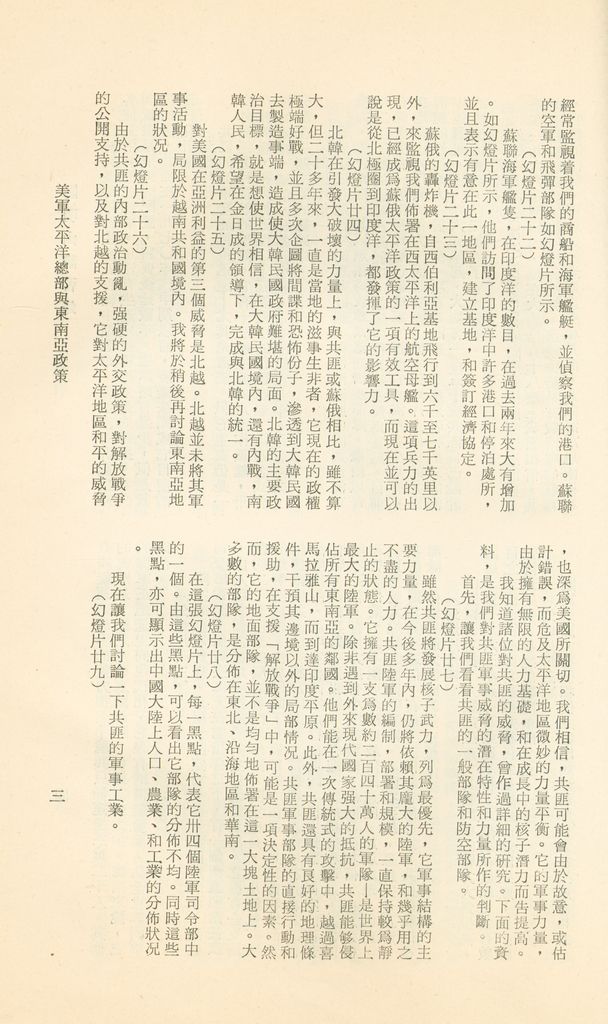 經常監視着我們的商船和海軍艦艇，並偵察我們的港口。蘇聯
的空軍和飛彈部隊如幻燈片所示。
（幻燈片二十二）
蘇聯海軍艦隻，在印度洋的數目，在過去兩年來大有增加
。如幻燈片所示，他們訪問了印度洋中許多港口和停泊處所，
並且表示有意在此一地區，建立基地，和簽訂經濟協定。
（幻燈片二十三）
蘇俄的轟炸機，自西伯利亞基地飛行到六千至七千英里以
外，來監視我們佈署在西太平洋上的航空母艦。這項兵力的出
現，已經成爲蘇俄太平洋政策的一項有效工具，而現在並可以
說是從北極圈到印度洋，都發揮了它的影響力。
（幻燈片廿四）
北韓在引發大破壞的力量上，與共匪或蘇俄相比，雖不算
大，但二十多年來，一直是當地的滋事生非者，它現在的政權
極端好戰，並且多次企圖將間諜和恐怖份子，滲透到大韓民國
去製造事端，造成使大韓民國政府難堪的局面。北韓的主要政
治目標，就是想使世界相信，在大韓民國境內，還有內戰，南
韓人民，希望在金日成的領導下，完成與北韓的統一。
（幻燈片二十五）
對美國在亞洲利益的第三個威脅是北越。北越並未將其軍
事活動，局限於越南共和國境內。我將於稍後再討論東南亞地
區的狀況。
（幻燈片二十六）
由於共匪的內部政治動亂，强硬的外交政策，對解放戰爭
的公開支持，以及對北越的支援，它對太平洋地區和平的威脅
美軍太平洋總部與東南亞政策
，也深爲美國所關切。我們相信，共匪可能會由於故意，或估
計錯誤，而危及太平洋地區微妙的力量平衡。它的軍事力量，
由於擁有無限的人力基礎，和在成長中的核子潛力而告提高。
我知道諸位對共匪的威脅，曾作過詳細的研究。下面的資
料，是我們對共匪軍事威脅的潛在特性和力量所作的判斷。
首先，讓我們看看共匪的一般部隊和防空部隊。
（幻燈片廿七）
雖然共匪將發展核子武力，列爲最優先，它軍事結構的主
要力量，在今後多年內，仍將依賴其龐大的陸軍，和幾乎用之
不盡的人力。共匪陸軍的編制，部署和規模，一直保持較爲靜
止的狀態。它擁有一支爲數約二百四十萬人的軍隊－是世界上
最大的陸軍。除非遇到外來現代國家强大的抵抗，共匪能够侵
佔所有東南亞的鄰國。他們能在一次傳統式的攻擊中，越過喜
馬拉雅山，而到達印度平原。此外，共匪還具有良好的地理條
件，干預其邊境以外的局部情况。共匪軍事部隊的直接行動和
援助，在支援「解放戰爭」中，可能是一項決定性的因素。然
而，它的地面部隊，並不是均勻地佈署在這一大塊土地上。大
多數的部隊，是分佈在東北、沿海地區和華南。
（幻燈片廿八）
在這張幻燈片上，每一黑點，代表它卅四個陸軍司令部中
的一個。由這些黑點，可以看出它部隊的分佈不均。同時這些
黑點，亦可顯示出中國大陸上人口、農業、和工業的分佈狀况
。
現在讓我們討論一下共匪的軍事工業。
（幻燈片廿九）
三